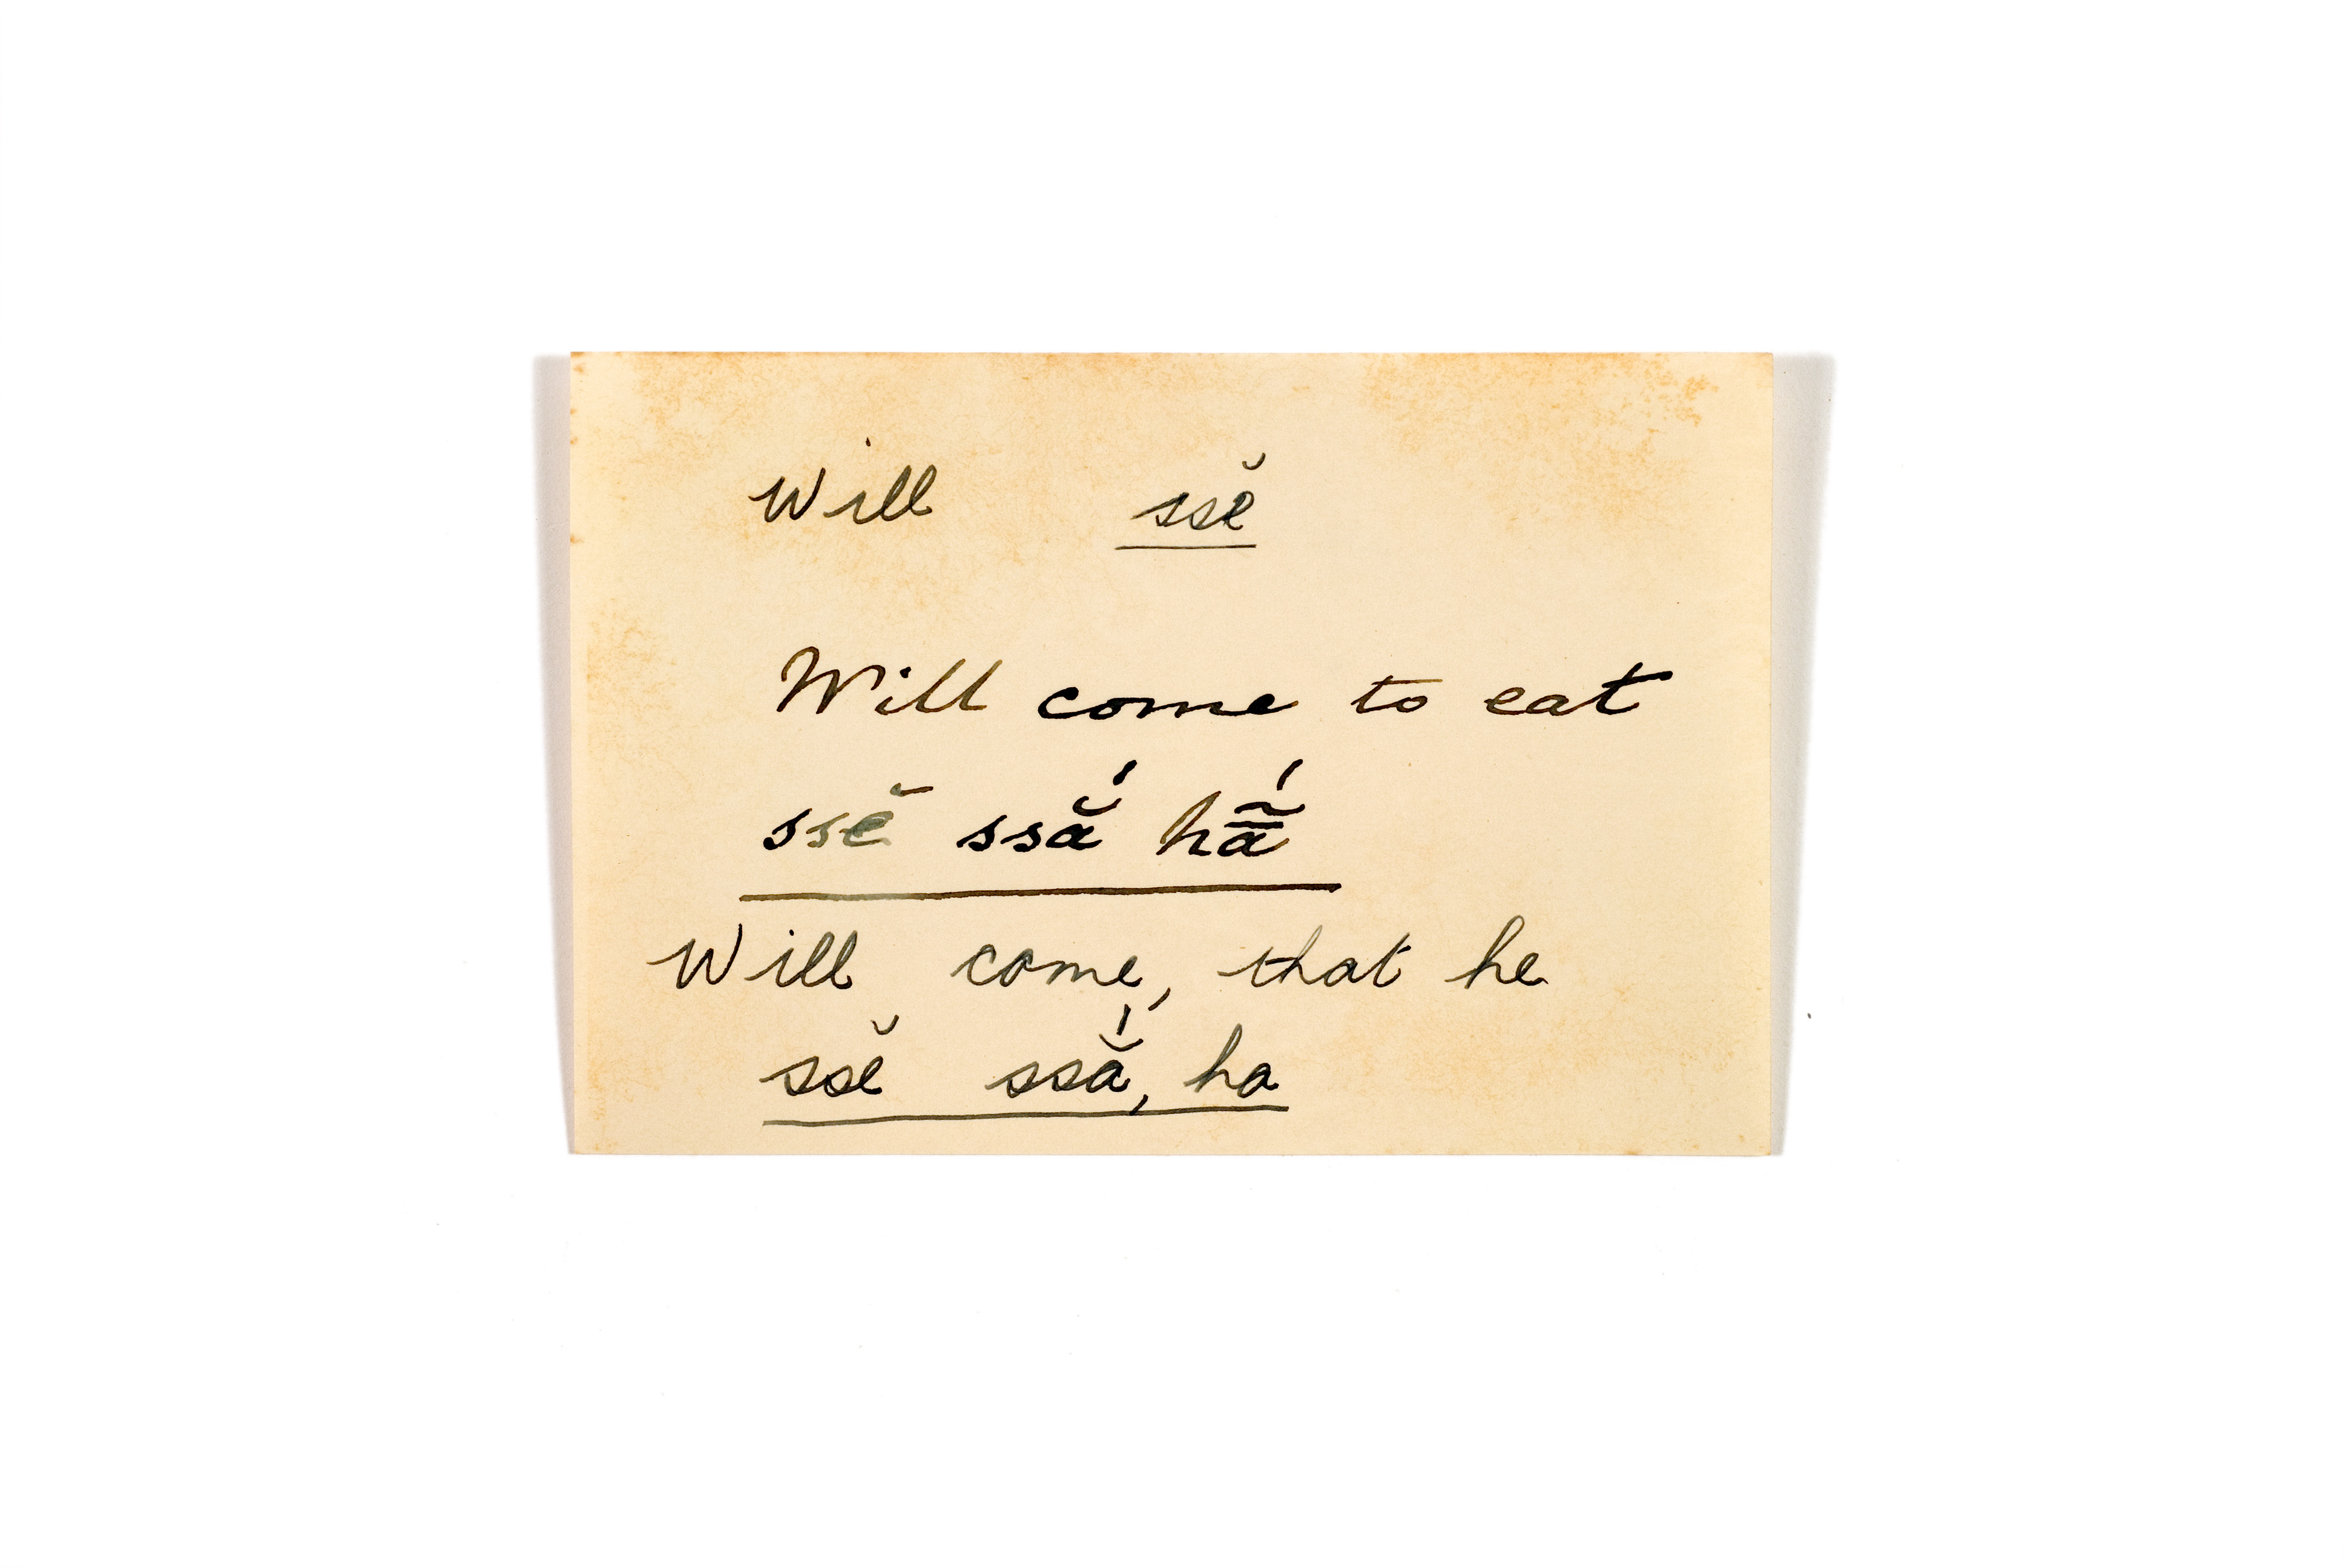 Will ssĕ
Will come to eat
ssĕ ssắ hã̄́
Will come, that he
ssĕ ssắ, ha